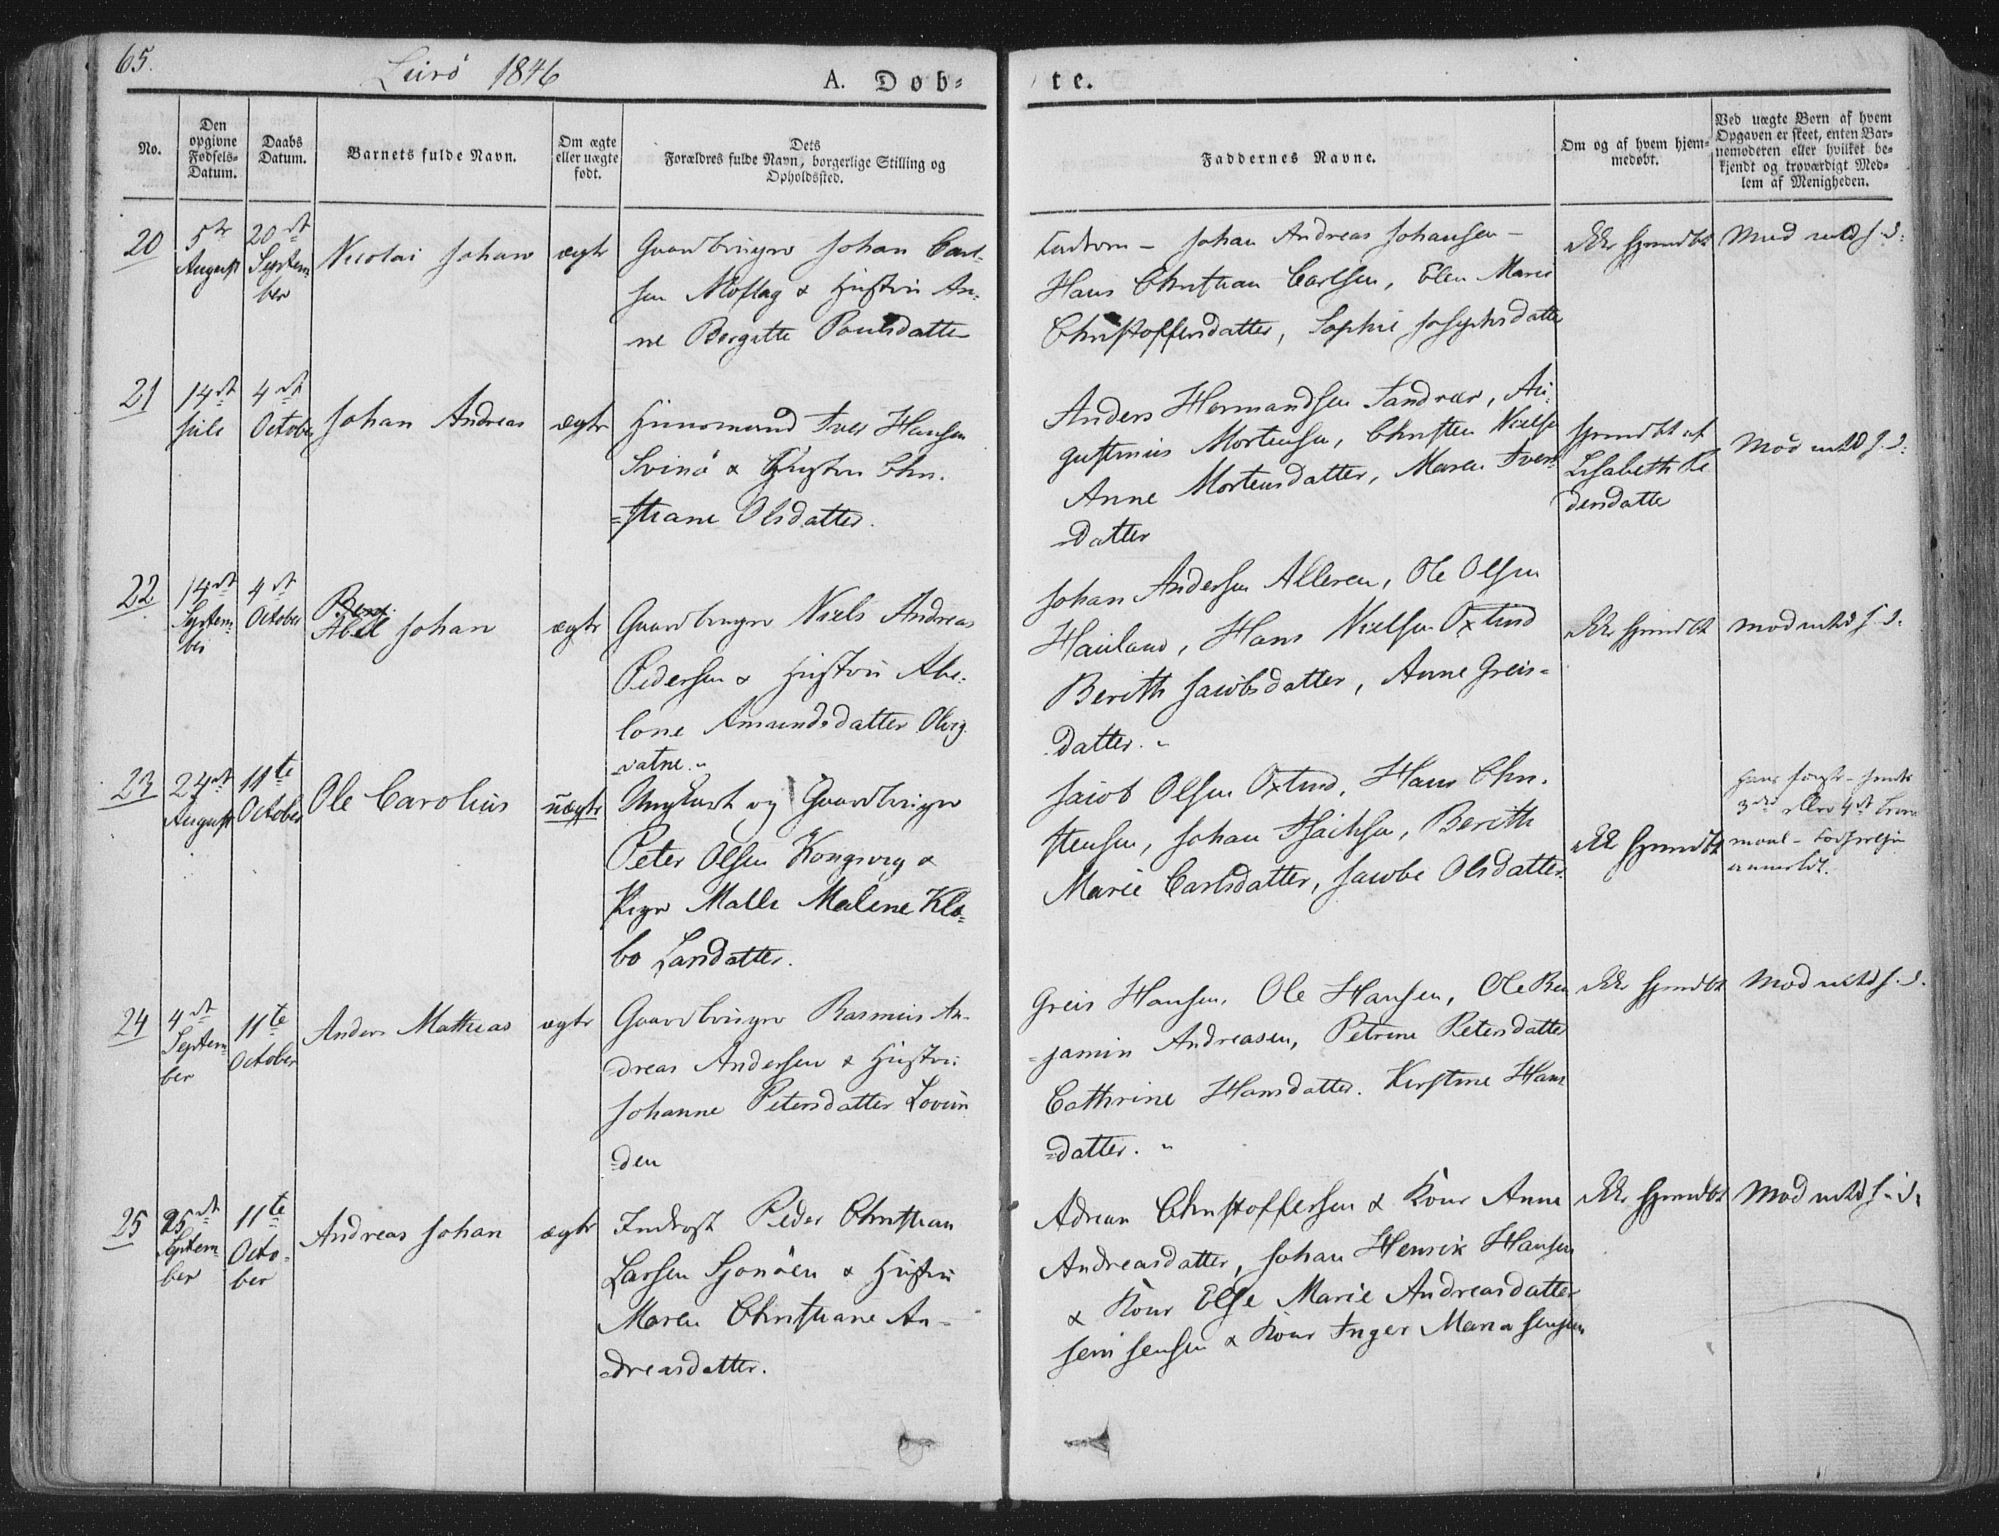 65.
Lurö 1846
A. Døb-
te.
No.
Den opgivne Fødsels-Datum.
Daabs Datum.
Barnets fulde Navn.
Om ægte eller uægte født.
Dets Forældres fulde Navn, borgerlige Stilling og Opholdssted.
Faddernes Navne.
Om og af hvem hjem-
medøbt.
Ved uægte Børn af hvem
Opgaven er skeet, enten Bar-
nemoderen eller hvilket be-
kjendt og troværdigt Med-
lem af Menigheden.
20
5te August
20de September
Nicolai Johan
ægte
Gaardbruger Johan Carl-
sen Moflag & Hustru An-
ne Bergitte Poulsdatter
Faderen - Johan Andreas Johansen -
Hans Christian Carlsen, Elen Marie
Christoffersdatter, Sophie Josephsdatter
Ikke hjemdøbt
21
14de Juli
4de October
Johan Andreas
ægte
Huusmand Iver Hansen
Svinö & Hustru Chri-
=stiane Olsdatter.
Anders Hermandsen Sandvær, Au-
gustinius Mortensen, Christen Niels
Anne Mortensdatter, Maren Ivers
=datter
hjemdöbt af
Lisabeth Pe
dersdatter
22
14de September
4de October
Abel Johan
ægte
Gaardbruger Niels Andreas
Pedersen & Hustru Abe-
lone Amundsdatter
vatne."
Johan Andersen Alleren, Ole Olsen
Hauland, Hans Nielsen Oxtind
Berith Jacobsdatter, Anne Greis-
datter. "
Ikke hjemdöbt
23
24de August
11te October
Ole Carolius
uægte
Ungkarl og Gaardbruger
Peter Olsen Kongsvig &
Pige Malene Klo-
bo Larsdatter.
Jacob Olsen Oxtind, Hans Chri-
stensen, Johan Isachsen, Berith
Marie Carlsdatter, Jacobe Olsdatter.
ikke hjemdöbt
3die eller 4de
anmeldt.
24
4de September
11te October
Anders Mathias
ægte
Gaardbruger Rasmus An-
dreas Andersen & Hustru
Johanne Petersdatter Lovun
=den
Greis Hansen, Ole Hansen, Ole Ben
=jamin Andreasen, Petrine Petersdatter
Cathrine Hansdatter. Kirstine Hans
=datter. "
Ikke hjemdöbt
25
25de September
11te October
Andreas Johan
ægte
Inderst Peder Christian
Larsen Sjonöen & Hustru
Maren Christiane An-
=dreasdatter.
Adrian Christoffersen & Kone Anne
Andreasdatter, Johan Henrik Hansen
& Kone Else Marie Andreasdatter
Jens Jensen & Kone Inger Maria Jensen
Ikke hjemdöbt